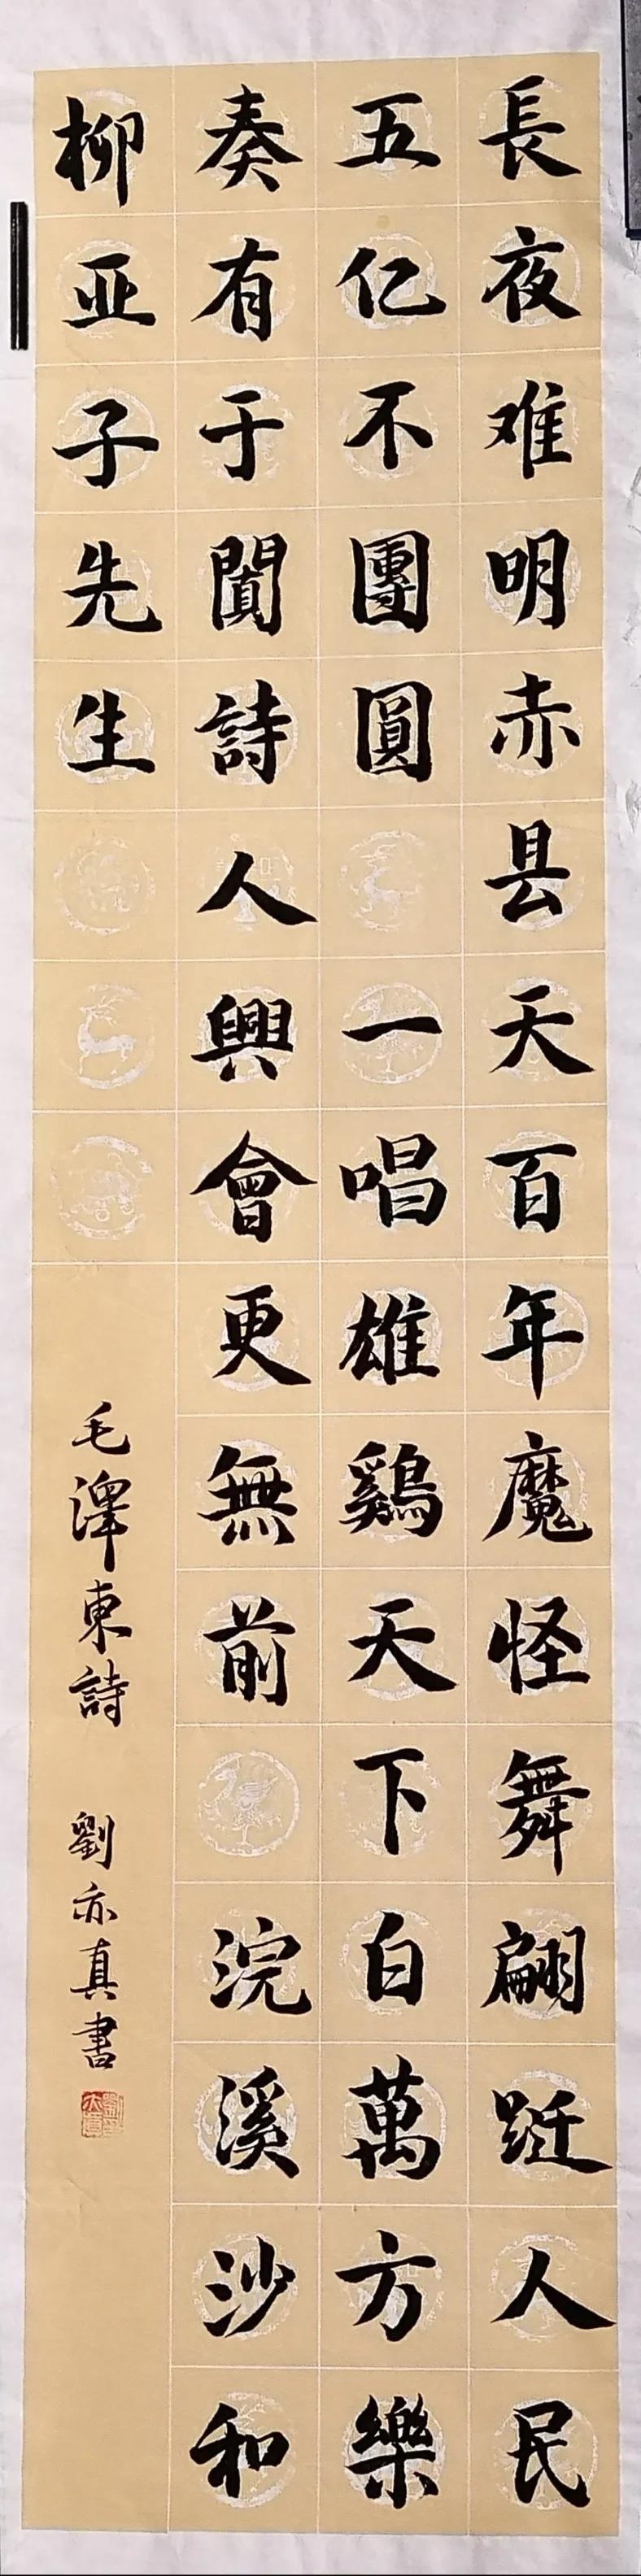 長夜难明赤县天百年魔怪舞翩跹人民
五亿不團圓 一唱雄鷄天下白萬方樂
奏有于闐詩人興會更無前 浣溪沙和
柳亚子先生
毛澤東詩 劉亦真書